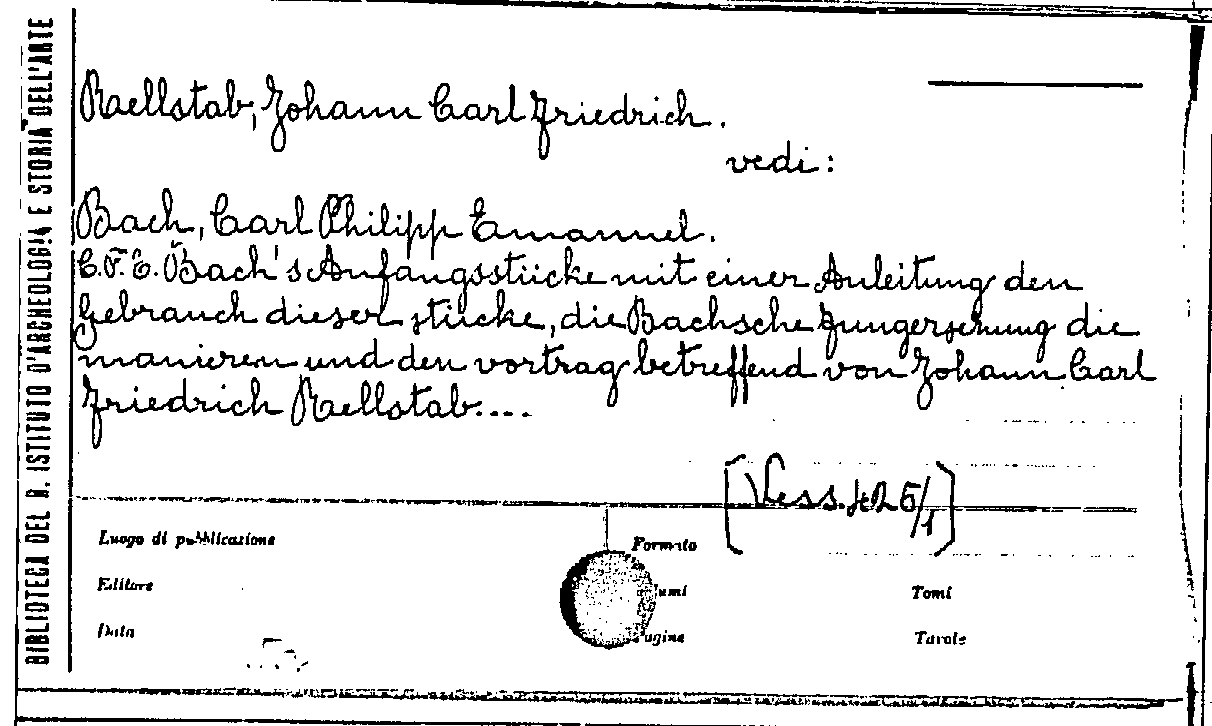 BIBLIOTECA DEL R. ISTITUTO D'ARCHEOLOGIA E STORIA DELL'ARTE
Raellstab, Johann Carl Friedrich.
vedi:
Bach, Carl Philipp Emanuel.
C.F.E. Bach's Anfangsstücke mit einer Anleitung den
Gebrauch dieser stücke, die Bachsche Fungersekung die
manieren und den vortrag betreffend von Johann Carl
Friedrich Raellstab....
[Vess. 425/1]
Luogo di pubblicazione
Formato
Editore
umi
Tomi
Data
agine
Tavole